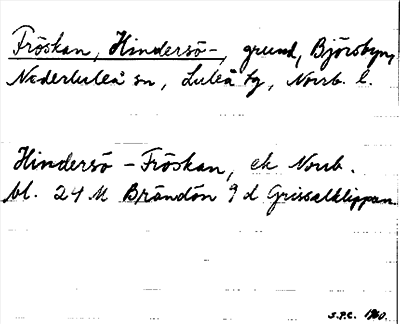 Fröskan, Hindersö-, grund, Björsbyn,
Nederluleå sn, Luleå tg, Norrb. l.
Hindersö-Fröskan, ek Norrb.
bl. 24 M Brändön 9 d Grisselklippan
S.P.C. 1960.